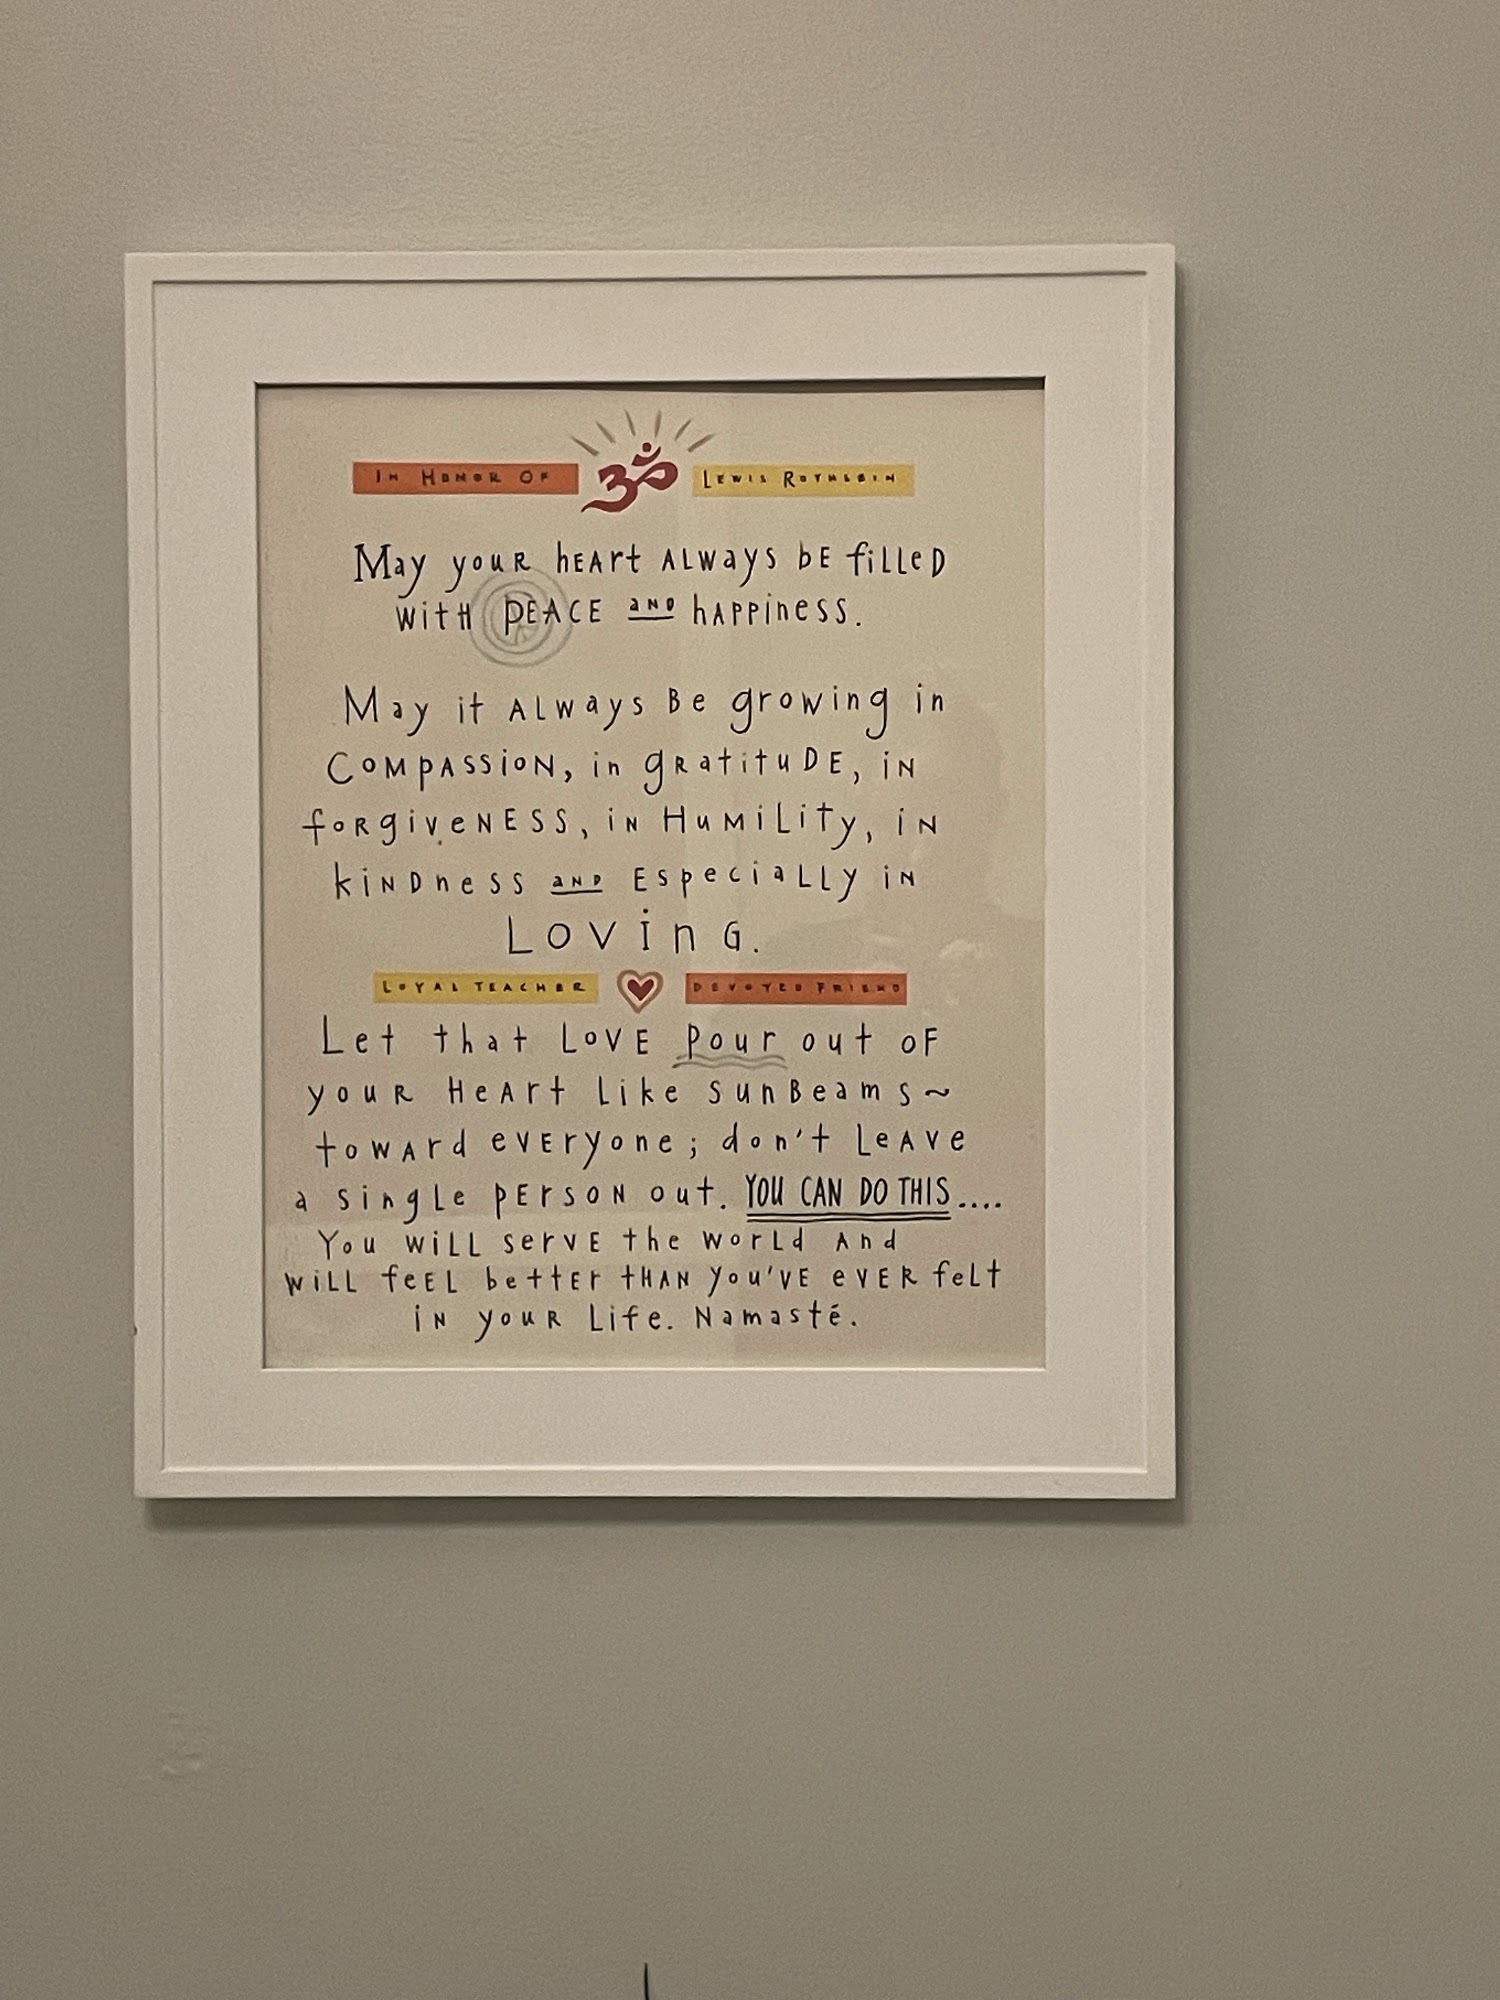 In Honor Of ॐ Lewis Rothlein
May your heArt ALWays bE fiLLeD
WitH PEACE aND hAPPiness.
May it ALWays Be growing in
COMPASSiON, in gRatituDE, iN
foRgiveNESS, iN HuMiLity, iN
kiNDness aND EspeciaLLy iN
LOViNG.
Loyal Teacher Devoted Friend
Let that LOVE Pour out oF
youR HeArt Like SunBeams~
toWArd eVEryone; don't LeAve
a SingLe PErsON out. YOU CAN DO THIS....
You WiLL servE the WorLd And
WiLL feEL bettEr tHAN you'VE eVER feLt
iN youR Life. Namasté.